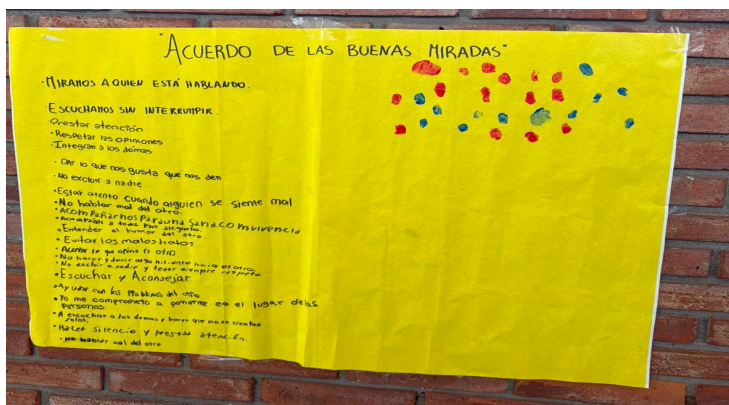 "ACUERDO DE LAS BUENAS MIRADAS"
· MIRAMOS A QUIEN ESTÁ HABLANDO.
· ESCUCHAMOS SIN INTERRUMPIR.
Prestar atención
· Respetar las opiniones
· Integrar a los demas
· DAr lo que nos gusta que nos den
· No excluir a nadie
· Estar atento cuando alguien se siente mal
· No hablar mal del otro.
· ACOMPañarnos Para una Sana convivencia
· Acompañar a todos para alegrarlos.
· Entender el humor del otro
· Evitar los malos tratos
· Aceptar lo que opina el otro
· No hacer y decir algo hiriente hacia el otro
· No excluir a nadie y tener siempre respeto
· Escuchar y Aconsejar
· Ayudar con los Problemas del otro
· Yo me comprometo a ponerme en el lugar de las
personas
· A escuchar a los demas y hacer que no se sientan
solos.
· Hacer silencio y prestar atención.
· No hablar mal del otro